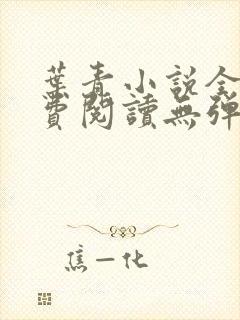 葉青小說全
費閱讀無彈
焦一化